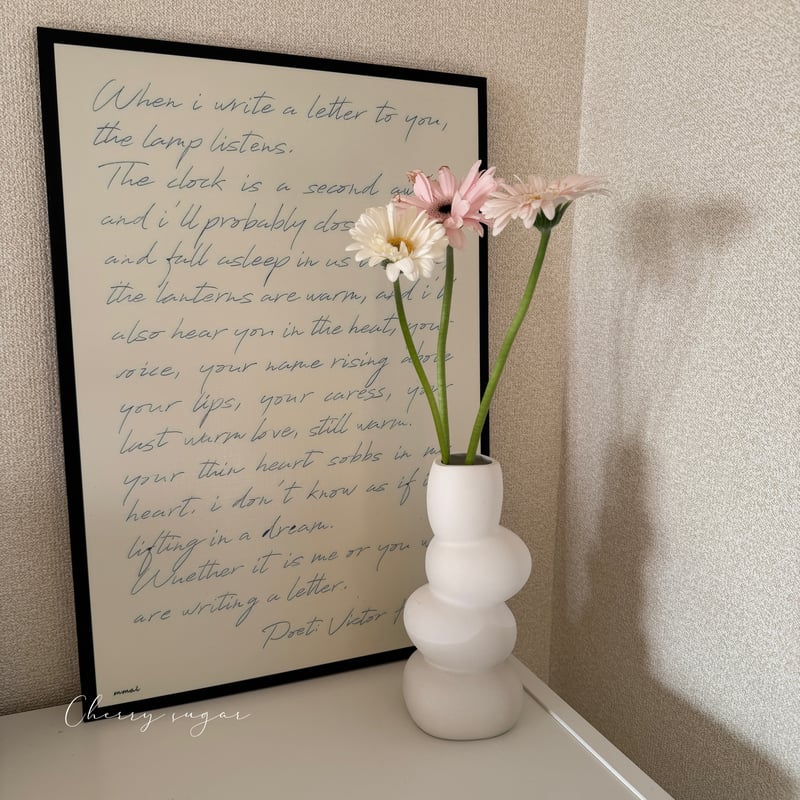 When i write a letter to you,
the lamp listens.
The clock is a second
and i'll probably
and fall asleep in us
the lanterns are warm, and i'll
also hear you in the heat, your
voice, your name rising above
your lips, your caress, your
last warm love, still warm.
your thin heart sobbs in
heart. i don't know as if
lifting in a dream.
Wuether it is me or you
are writing a letter.
Poet: Victor
mmai
Cherry sugar